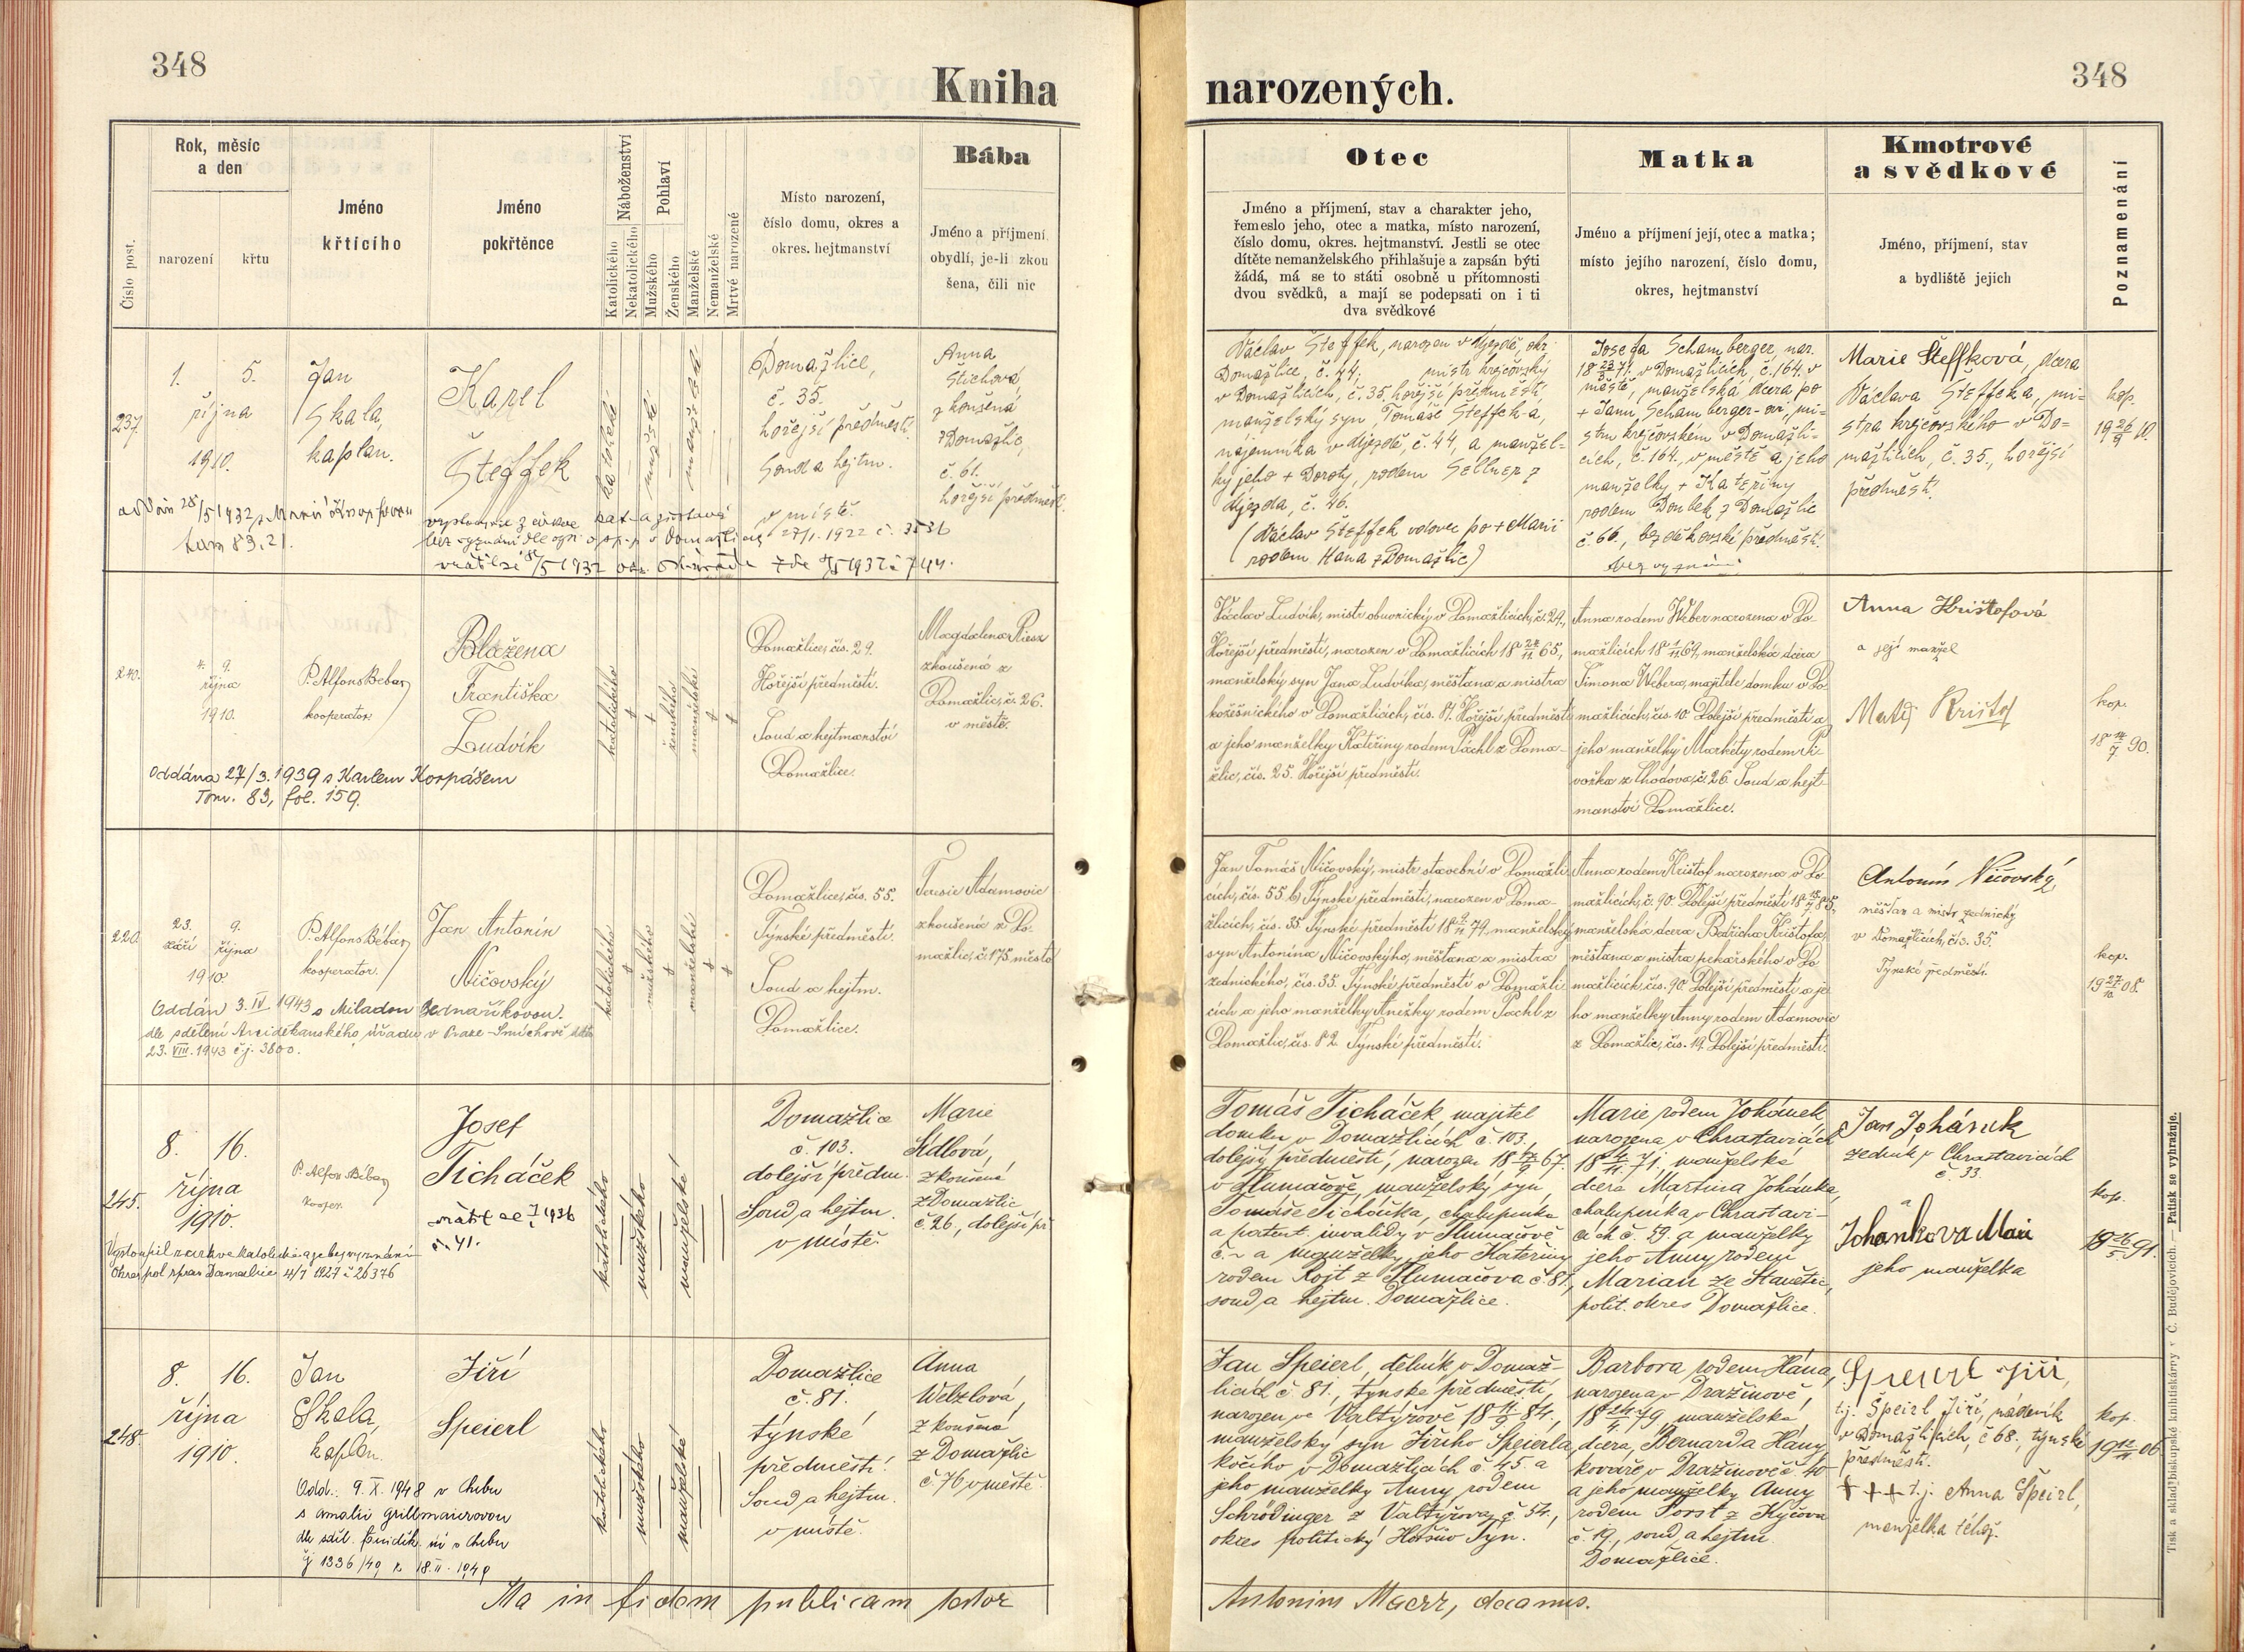 348
Kniha
narozených.
348
Číslo post.
Rok, měsíc
a den
narození
křtu
Jméno
křtícího
Jméno
pokřtěnce
Náboženství
Katolického
Nekatolického
Pohlaví
Mužského
Ženského
Manželské
Nemanželské
Mrtvé narozené
Místo narození,
číslo domu, okres a
okres. hejtmanství
Bába
Jméno a příjmení
obydlí, je-li zkou
šena, čili nic
Otec
Jméno a příjmení, stav a charakter jeho,
řemeslo jeho, otec a matka, místo narození,
číslo domu, okres. hejtmanství. Jestli se otec
dítěte nemanželského přihlašuje a zapsán býti
žádá, má se to státi osobně u přítomnosti
dvou svědků, a mají se podepsati on i ti
dva svědkové
Matka
Jméno a příjmení její, otec a matka;
místo jejího narození, číslo domu,
okres, hejtmanství
Kmotrové
a svědkové
Jméno, příjmení, stav
a bydliště jejich
Poznamenání
237.
1. 5.
října
1910.
Jan
Skala,
kaplan.
Karel
Šteffek
manželské
Domažlice,
č. 35.
hořejší předměstí.
Soud a hejtm.
v místě.
Anna
Stichová,
zkoušená
z Domažlic,
č. 61.
hořejší předměstí.
tom 83, 21.
Václav Šteffek, narozen v Újezdě, okr.
Domažlice, č. 44, mistr krejčovský
v Domažlicích, č. 35, hořejší předměstí,
manželský syn Tomáše Šteffek-a,
nájemníka v Újezdě, č. 44, a manžel-
ky jeho + Doroty, rodem Sellner z
Újezda, č. 46.
(Václav Šteffek vdovec po + Marii
rodem Hana z Domažlic)
Josefa Schamberger, nar.
18 23/3 71. v Domažlicích, č. 164. v
městě, manželská dcera po
+ Janu Schamberger-ovi, mi-
stru krejčovském v Domažli-
cích, č. 164., v městě a jeho
manželky + Kateřiny
rodem Doubek z Domažlic
č. 66, bezděkovské předměstí.
bez vyznání
Marie Šteffková, dcera
Václava Šteffeka, mi-
stra krejčovského v Do-
mažlicích, č. 35., hořejší
předměstí.
kop.
19 26/9 10.
240.
4. 9.
října
1910.
P. Alfons Bébar,
kooperator.
Blažena
Františka
Ludvík
Oddána 27/3. 1939 s Karlem Korpášem
Tom. 83, fol. 159.
katolického
ženského
manželské
Domažlice, čís. 29.
Hořejší předměstí.
Soud a hejtmanství
Domažlice.
Magdalena Riesz
zkoušená z
Domažlic, č. 26.
v městě.
Václav Ludvík, mistr obuvnický v Domažlicích, č. 29.,
Hořejší předměstí, narozen v Domažlicích 18 24/11 65,
manželský syn Jana Ludvíka, měšťana a mistra
kožešnického v Domažlicích, čís. 87. Hořejší předměstí
a jeho manželky Kateřiny rodem Páchl z Doma-
žlic, čís. 25. Hořejší předměstí.
Anna rodem Weber narozena v Do-
mažlicích 18 1/11 69, manželská dcera
Šimona Webera, majitele domku v Do-
mažlicích, čís. 10. Dolejší předměstí a
jeho manželky Markéty rodem Pi-
voňka z Chodova, č. 26. Soud a hejt-
manství Domažlice.
Anna Krištofová
a její manžel
Matěj Krištof
kop.
18 14/7 90.
220.
23. 9.
září října
1910.
P. Alfons Bébar,
kooperator.
Jan Antonín
Ničovský
Oddán 3. IV. 1943 s Miladou Bednaříkovou.
dle sdělení Arciděkanského úřadu v Praze-Smíchově dtto
23. VIII. 1943 č.j. 3800.
katolického
mužského
manželské
Domažlice, čís. 55.
Týnské předměstí.
Soud a hejtm.
Domažlice.
Teresie Adamovic
zkoušená z Do-
mažlic, č. 175 město
Jan Tomáš Ničovský, mistr stavební v Domažli-
cích, čís. 55 b) Týnské předměstí, narozen v Doma-
žlicích, čís. 35. Týnské předměstí 18 9/12 79, manželský
syn Antonína Ničovskýho, měšťana a mistra
zednického, čís. 35. Týnské předměstí v Domažli-
cích a jeho manželky Anežky rodem Pachl z
Domažlic, čís. 82. Týnské předměstí.
Anna rodem Krištof narozena v Do-
mažlicích, č. 90. Dolejší předměstí
manželská dcera Bedřicha Krištofa,
měšťana a mistra pekařského v Do-
mažlicích, čís. 90. Dolejší předměstí a je-
ho manželky Anny rodem Adamovic
z Domažlic, čís. 19. Dolejší předměstí.
Antonín Ničovský,
měšťan a mistr zednický
v Domažlicích, čís. 35.
Týnské předměstí.
kop.
19 27/10 08.
245.
8. 16.
října
1910.
P. Alfons Bébar,
kooper.
Josef
Ticháček
vrátil se
1936
č. 41.
Vystoupil z církve katolické a je bez vyznání
Okres. pol. správ. Domažlice 4/7 1927 č 26376
katolického
mužského
manželské
Domažlice
č. 103.
dolejší předm.
Soud a hejtm.
v místě.
Marie
Sidlová,
zkoušená
z Domažlic
č. 26., dolejší př
Tomáš Ticháček, majitel
domku v Domažlicích č. 103.,
dolejší předměstí, narozen 18 17/9 67.
v Tlumačově, manželský syn
Tomáše Ticháčka, chalupníka
a patent. invalidy v Tlumačově
a manželky jeho Kateřiny
rodem Rojt z Tlumačova č. 81,
soud a hejtm. Domažlice.
Marie rodem Johánek
narozena v Chrastavicích
18 4/11 71, manželská
dcera Martina Johánka,
chalupníka v Chrastavi-
cích č. 29. a manželky
jeho Anny rodem
Marian ze Stanětic,
polit. okres Domažlice.
Jan Johánek
zedník v Chrastavicích
č. 33.
a
Johankova Mari
jeho manželka
kop.
18 26/5 91.
248.
8. 16.
října
1910.
Jan
Skala,
kaplan.
Jiří
Speierl
Odd.: 9. X. 1948 v Chebu
s Amalií Grillmaierovou
dle sděl. v Chebu
čj 1336/49 z 18. II. 1949
katolického
mužského
manželské
Domažlice
č. 81.
týnské
předměstí.
Soud a hejtm.
v místě.
Anna
Welzlová,
zkoušená
z Domažlic
č. 76 v městě.
Jan Speierl, dělník v Domaž-
licích č. 81., týnské předměstí,
narozen ve Valtýřově 18 11/9 84.,
manželský syn Jiřího Speierla,
kočího v Domažlicích č. 45. a
jeho manželky Anny rodem
Schrödinger z Valtýřova, č. 54.,
okres politický Horšův Týn.
Barbora rodem Hána,
narozena v Dražinově,
18 24/4 79, manželská
dcera, Bernarda Hány,
kováře v Dražinově č. 40
a jeho manželky Anny
rodem Forst z Kyčova
č. 19., soud a hejtm.
Domažlice.
Speierl Jiří,
t.j. Speirl Jiří, nádeník
v Domažlicích, č 68., týnské
předměstí.
+++ t.j. Anna Špeirl,
manželka téhož.
kop.
Ita in fidem publicam testor
Antonius Maerz, decanus.
Tisk a sklad biskupské knihtiskárny v Č. Budějovicích. — Patisk se vyhražuje.